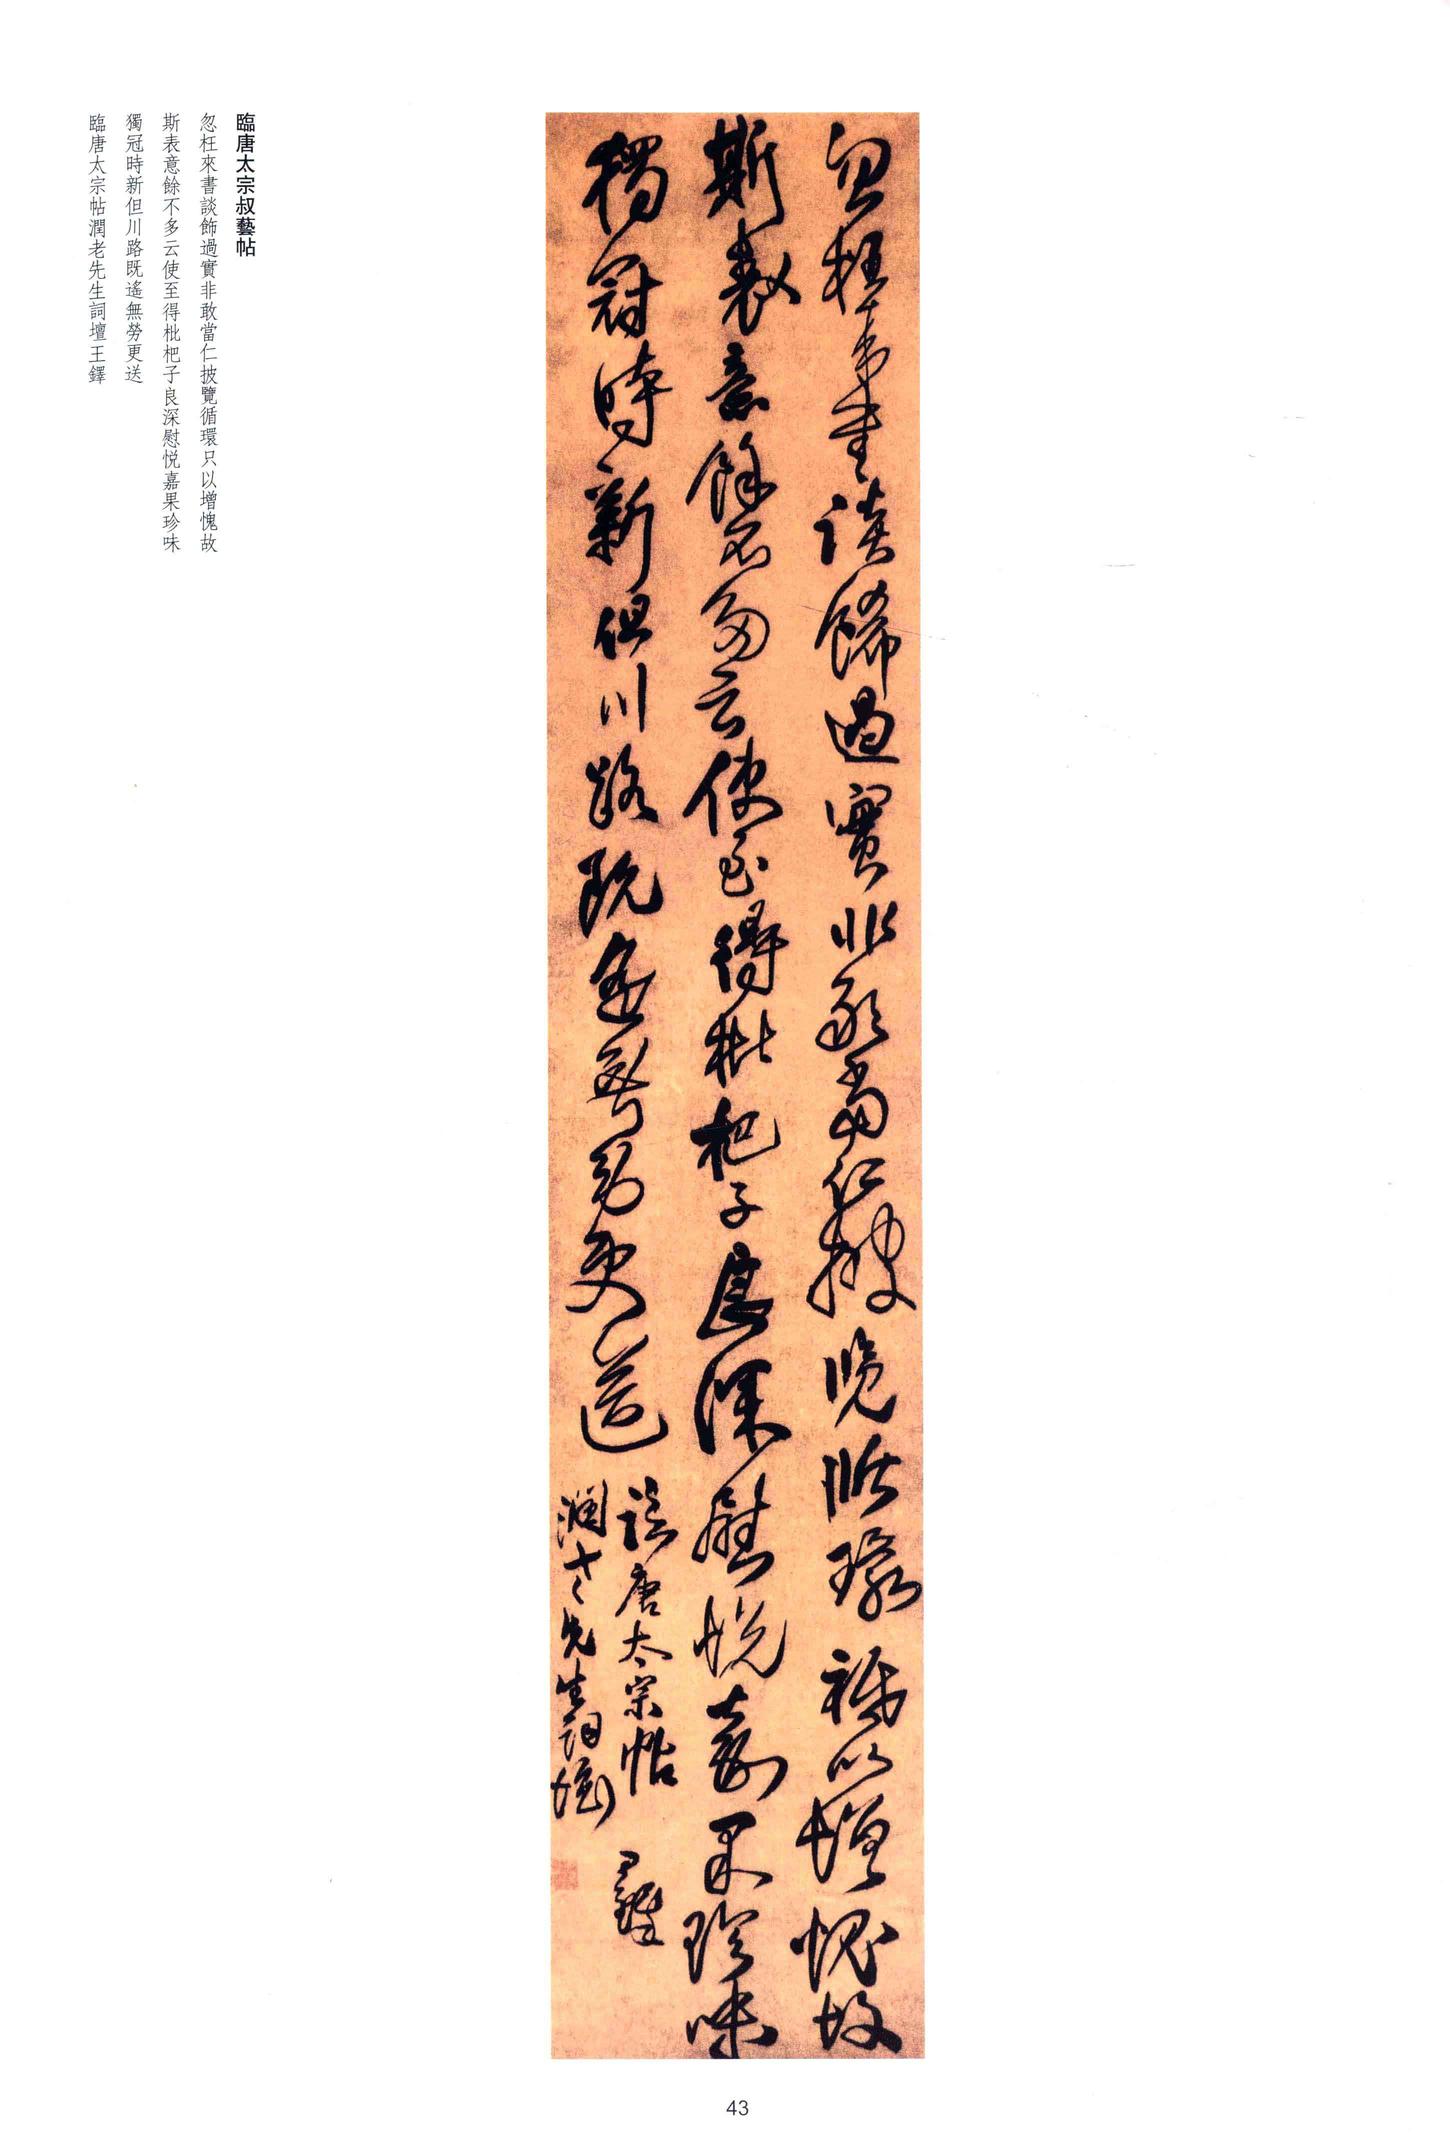 臨唐太宗叔藝帖
忽枉來書談飾過實非敢當仁披覽循環只以增愧故
斯表意餘不多云使至得枇杷子良深慰悅嘉果珍味
獨冠時新但川路既遙無勞更送
臨唐太宗帖潤老先生詞壇王鐸
忽枉來書談飾過實非敢當仁披覽循環祇以增愧故
斯表意餘不多云使至得枇杷子良深慰悅嘉果珍味
獨冠時新但川路既遙無勞更送
臨唐太宗帖
潤老先生詞壇
王鐸
43